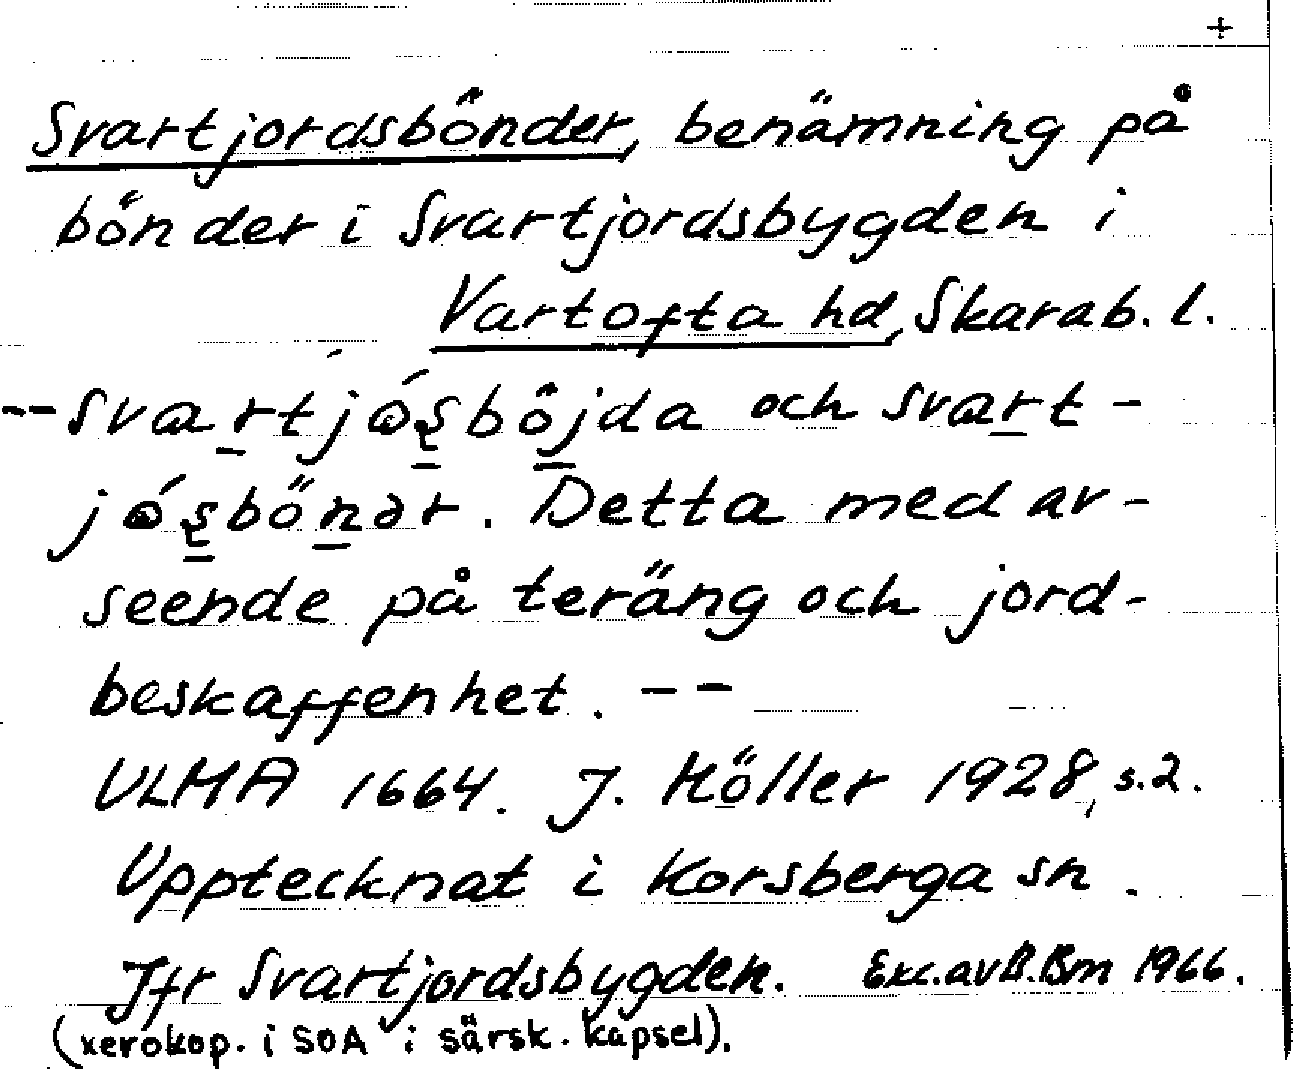 +
Svartjordsbönder, benämning på
bönder i Svartjordsbygden i
Vartofta hd, Skarab. l.
-- svart och svart-
Detta med av-
seende på teräng och jord-
beskaffenhet. --
ULMA 1664. J. Höller 1928, s.2.
Upptecknat i Korsberga sn.
Jfr Svartjordsbygden. Exc. av B.Bm 1966.
(xerokop. i SOA i särsk. kapsel).